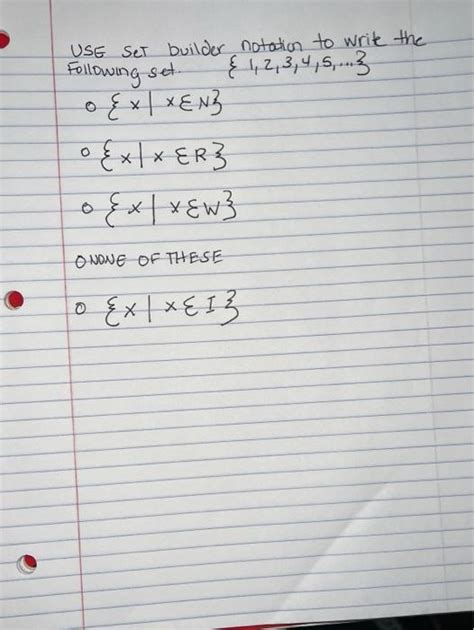 USE set builder notation to write the
Following set. { 1, 2, 3, 4, 5, ...}
o { x | x ∈ N}
o { x | x ∈ R}
o { x | x ∈ W}
O NONE OF THESE
o { x | x ∈ I}